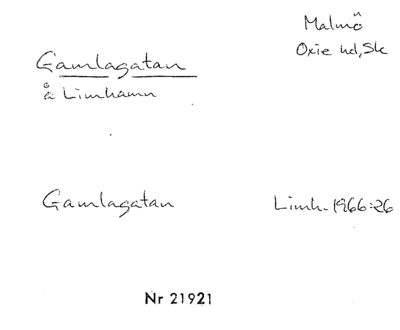 Malmö
Oxie hd, Sk
Gamlagatan
å Limhamn
Gamlagatan
Limh. 1966:26
Nr 21921